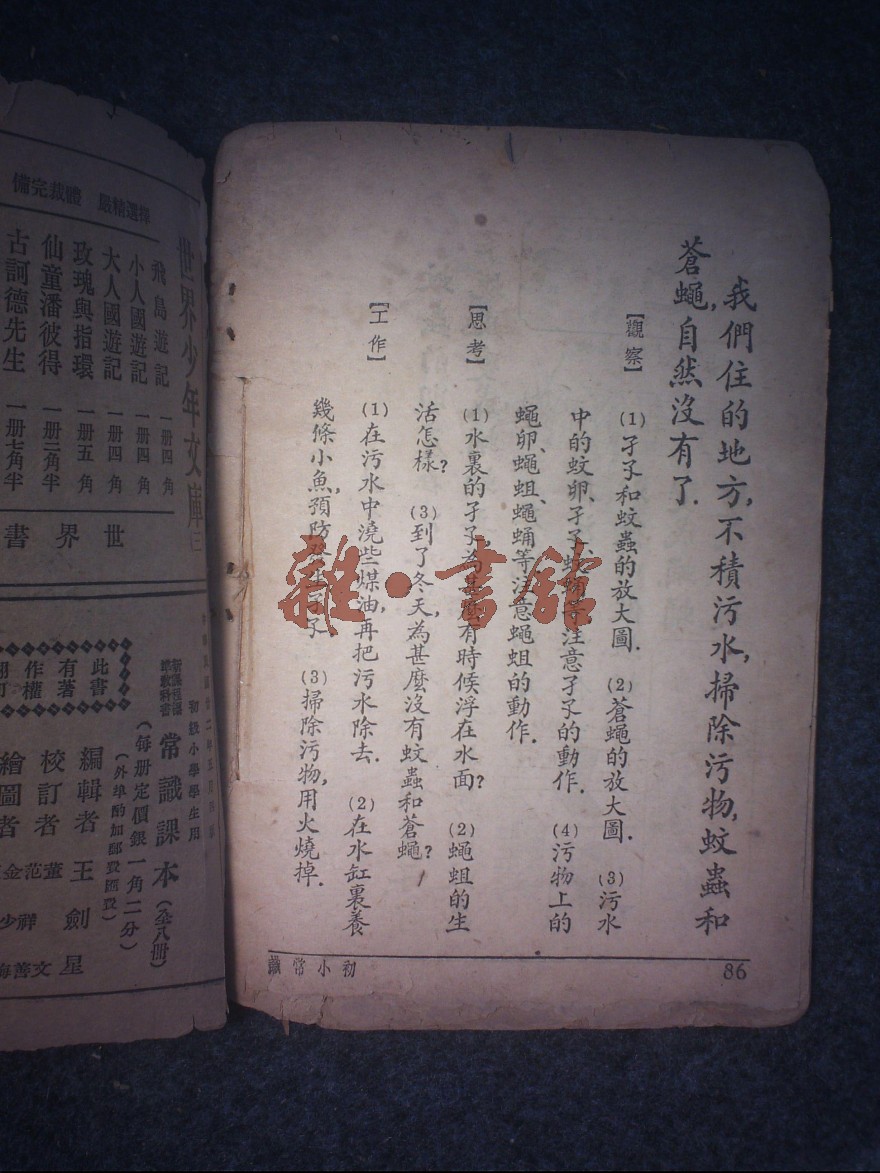 我們住的地方,不積污水,掃除污物,蚊蟲和
蒼蠅,自然沒有了.
【觀察】 (1)孑孓和蚊蟲的放大圖. (2)蒼蠅的放大圖. (3)污水
中的蚊卵、孑孓、蚊蛹等,注意孑孓的動作. (4)污物上的
蠅卵、蠅蛆、蠅蛹等,注意蠅蛆的動作.
【思考】 (1)水裏的孑孓,為甚麼有時候浮在水面? (2)蠅蛆的生
活怎樣? (3)到了冬天,為甚麼沒有蚊蟲和蒼蠅?
【工作】 (1)在污水中澆些煤油,再把污水除去. (2)在水缸裏養
幾條小魚,預防發生孑孓. (3)掃除污物,用火燒掉.
初小常識
86
雜·書館
世界少年文庫(三)
最精選擇 備完裁體
飛島遊記 一册四角
小人國遊記 一册四角
大人國遊記 一册四角
玫瑰與指環 一册五角
仙童潘彼得 一册二角半
古訶德先生 一册七角半
世界書
初級小學學生用
常識課本(全八册)
(每册定價銀一角二分)
(外埠酌加郵費匯費)
此書
有著
作權
翻印
編輯者 王劍星
校訂者 董文
范祥善
繪圖者